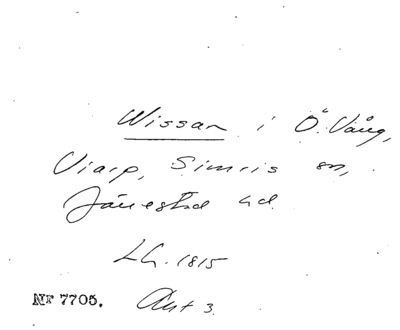 Wissan i Ö. Vång,
Viarp, Simris sn,
Järrestad hd.
LG. 1815
Akt 3.
Nr 7705.